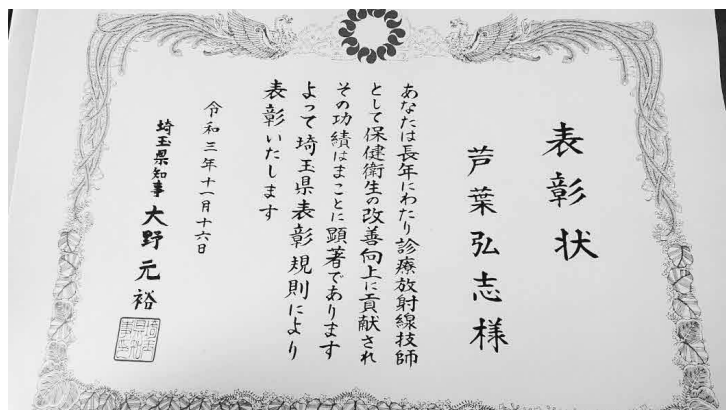 表彰状
芦葉弘志様
あなたは長年にわたり診療放射線技師
として保健衛生の改善向上に貢献され
その功績はまことに顕著であります
よって埼玉県表彰規則により
表彰いたします
令和三年十一月十六日
埼玉県知事 大野元裕